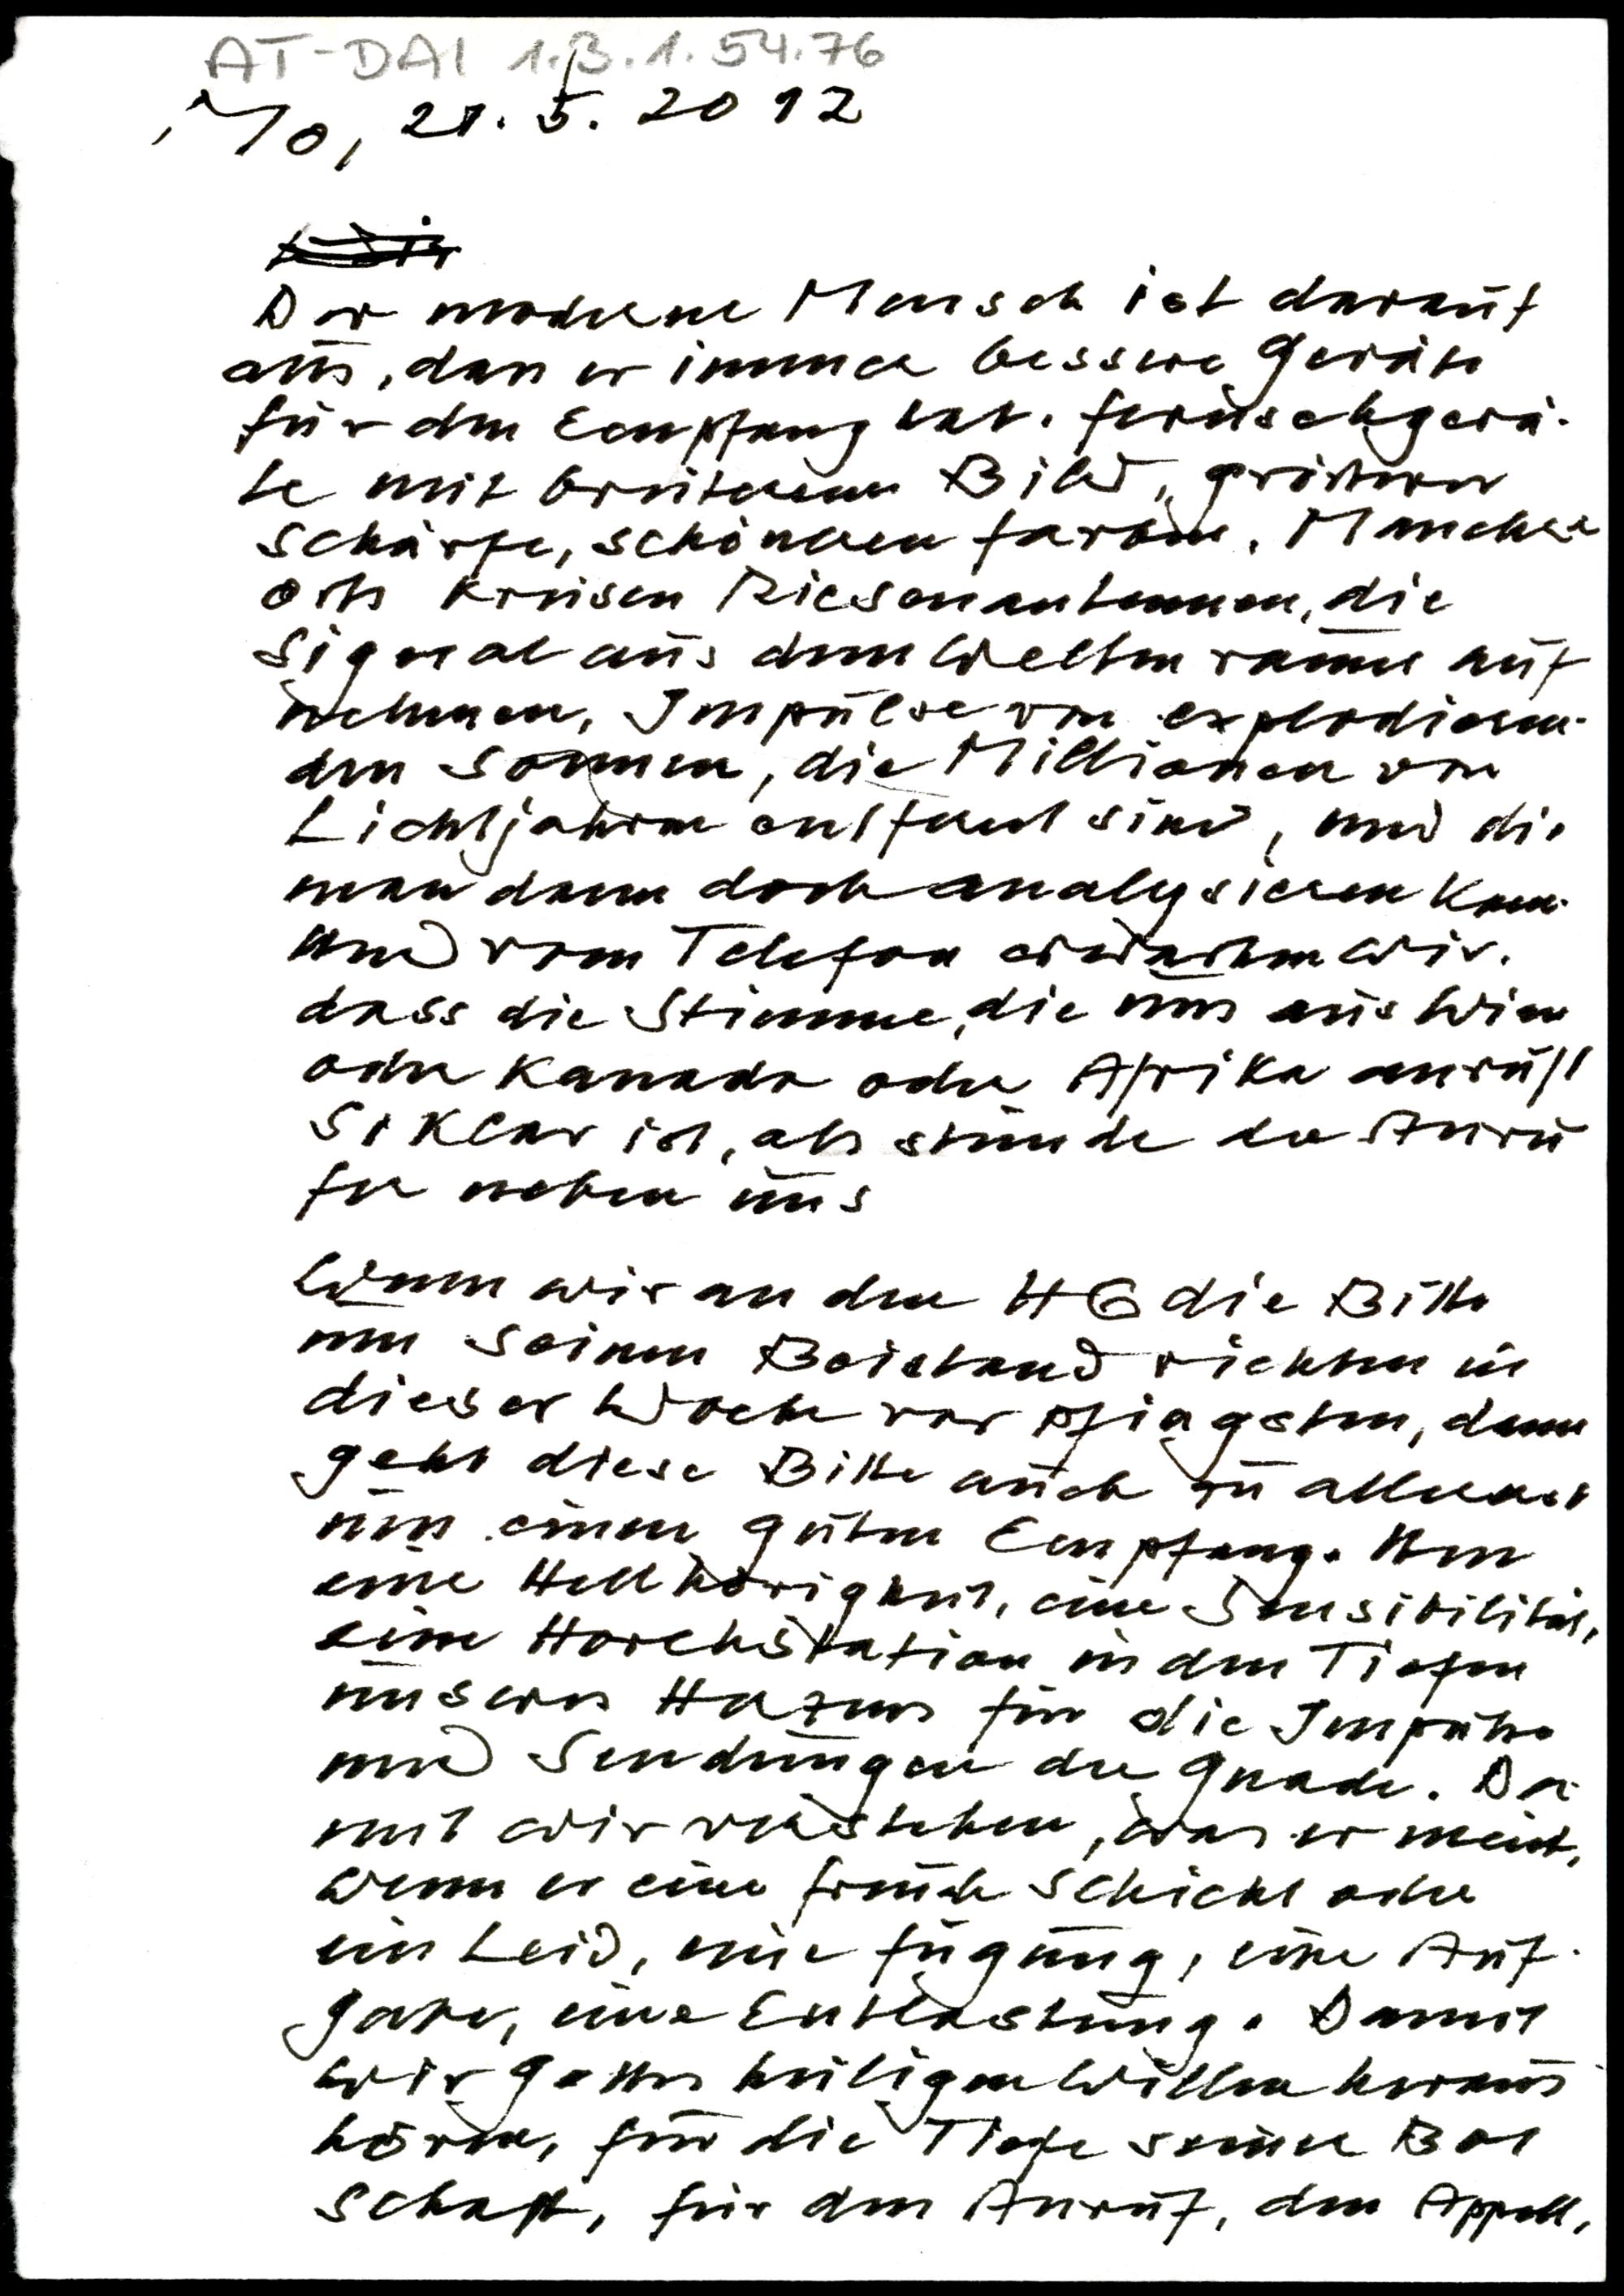 AT-DAI 1.B.1.54.76
Mo, 21.5.2012
Der moderne Mensch ist darauf
aus, dass er immer bessere Geräte
für den Empfang hat. Fernsehgerä-
te mit breiterem Bild, grösserer
Schärfe, schöneren Farben. Mancher
orts kreisen Riesenantennen, die
Signale aus dem Weltenraume auf
nehmen, Impulse von explodieren-
den Sonnen, die Millionen von
Lichtjahren entfernt sind, und die
man dann doch analysieren kann.
Und vom Telefon erwarten wir,
dass die Stimme, die uns aus Wien
oder Kanada oder Afrika anruft
so klar ist, als stünde der Anru
fer neben uns
Wenn wir an den HG die Bitte
um seinen Beistand richten in
dieser Woche vor Pfingsten, dann
geht diese Bitte auch zu allererst
um einen guten Empfang. Um
eine Hellhörigkeit, eine Sensibilität,
eine Horchstation in den Tiefen
unseres Herzens für die Impulse
und Sendungen der Gnade. Da-
mit wir verstehen, was er meint,
wenn er eine Freude schickt oder
ein Leid, eine Fügung, eine Auf-
gabe, eine Entlastung. Damit
wir Gottes heiligen Willen heraus
hören, für die Tiefe seiner Bot
schaft, für den Anruf, den Appell,